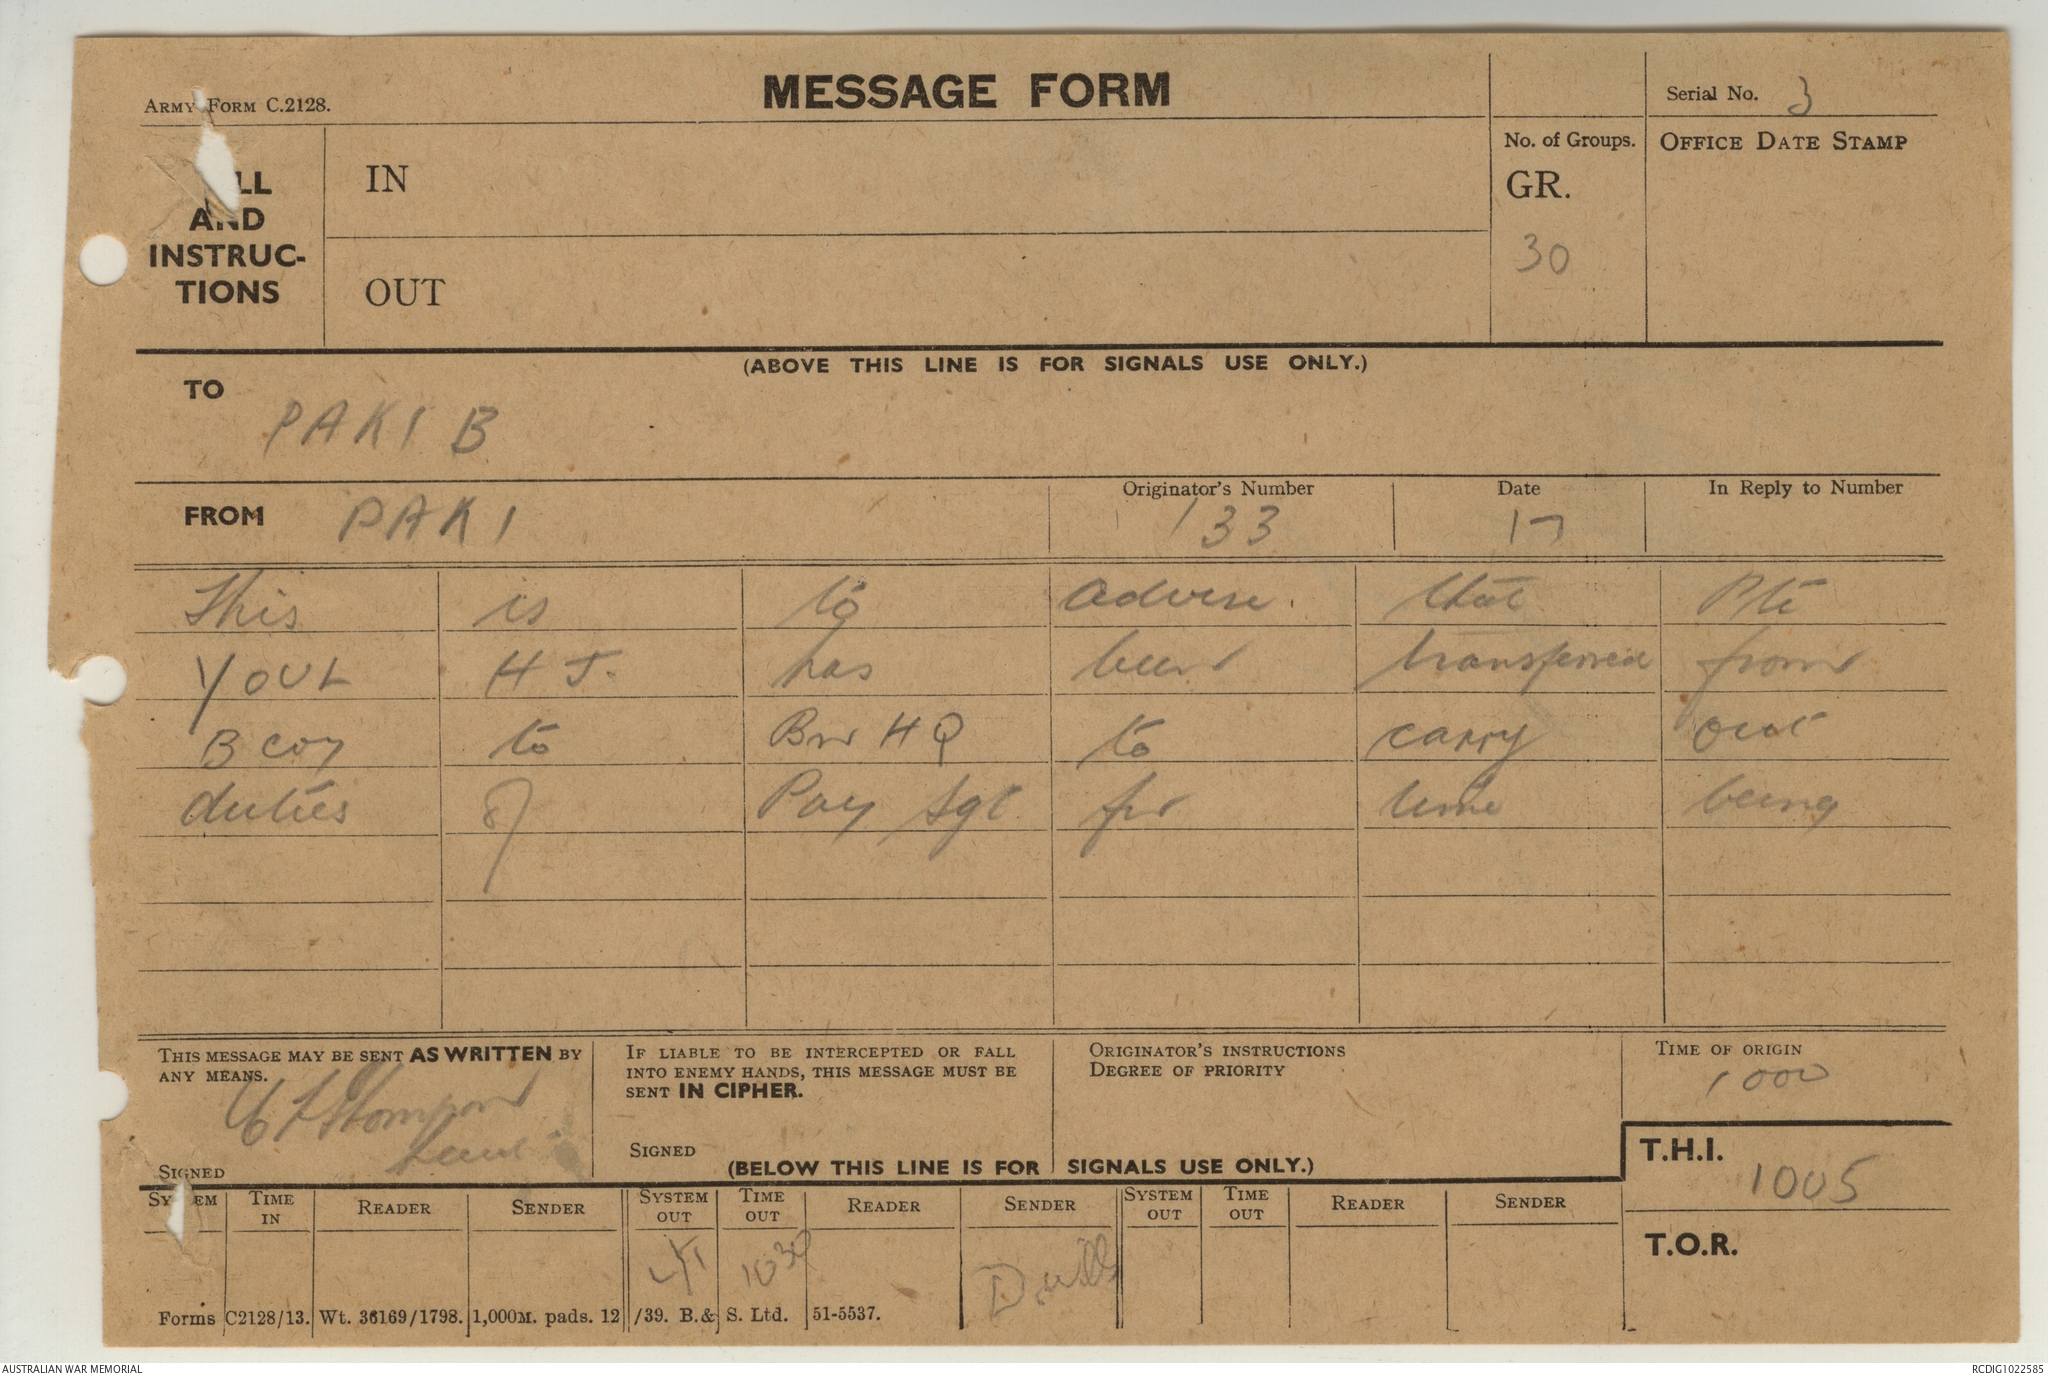 MESSAGE FORM
ARMY FORM C.2128.
Serial No. 3
AND INSTRUC-TIONS
IN
OUT
No. of Groups.
GR.
30
OFFICE DATE STAMP
(ABOVE THIS LINE IS FOR SIGNALS USE ONLY.)
TO
PAKI B
FROM PAKI
Originator's Number
133
Date
17
In Reply to Number
This is to advise. that Pte
YOUL H J. has been transferred from
B coy to Bn HQ to carry out
duties of Pay Sgt for time being
THIS MESSAGE MAY BE SENT AS WRITTEN BY ANY MEANS.
SIGNED
IF LIABLE TO BE INTERCEPTED OR FALL INTO ENEMY HANDS, THIS MESSAGE MUST BE SENT IN CIPHER.
SIGNED
ORIGINATOR'S INSTRUCTIONS
DEGREE OF PRIORITY
TIME OF ORIGIN
1000
(BELOW THIS LINE IS FOR SIGNALS USE ONLY.)
T.H.I.
1005
T.O.R.
TIME IN READER SENDER SYSTEM OUT TIME OUT READER SENDER SYSTEM OUT TIME OUT READER SENDER
Forms C2128/13. Wt. 36169/1798. 1,000M. pads. 12/39. B.& S. Ltd. 51-5537.
AUSTRALIAN WAR MEMORIAL
RCDIG1022585